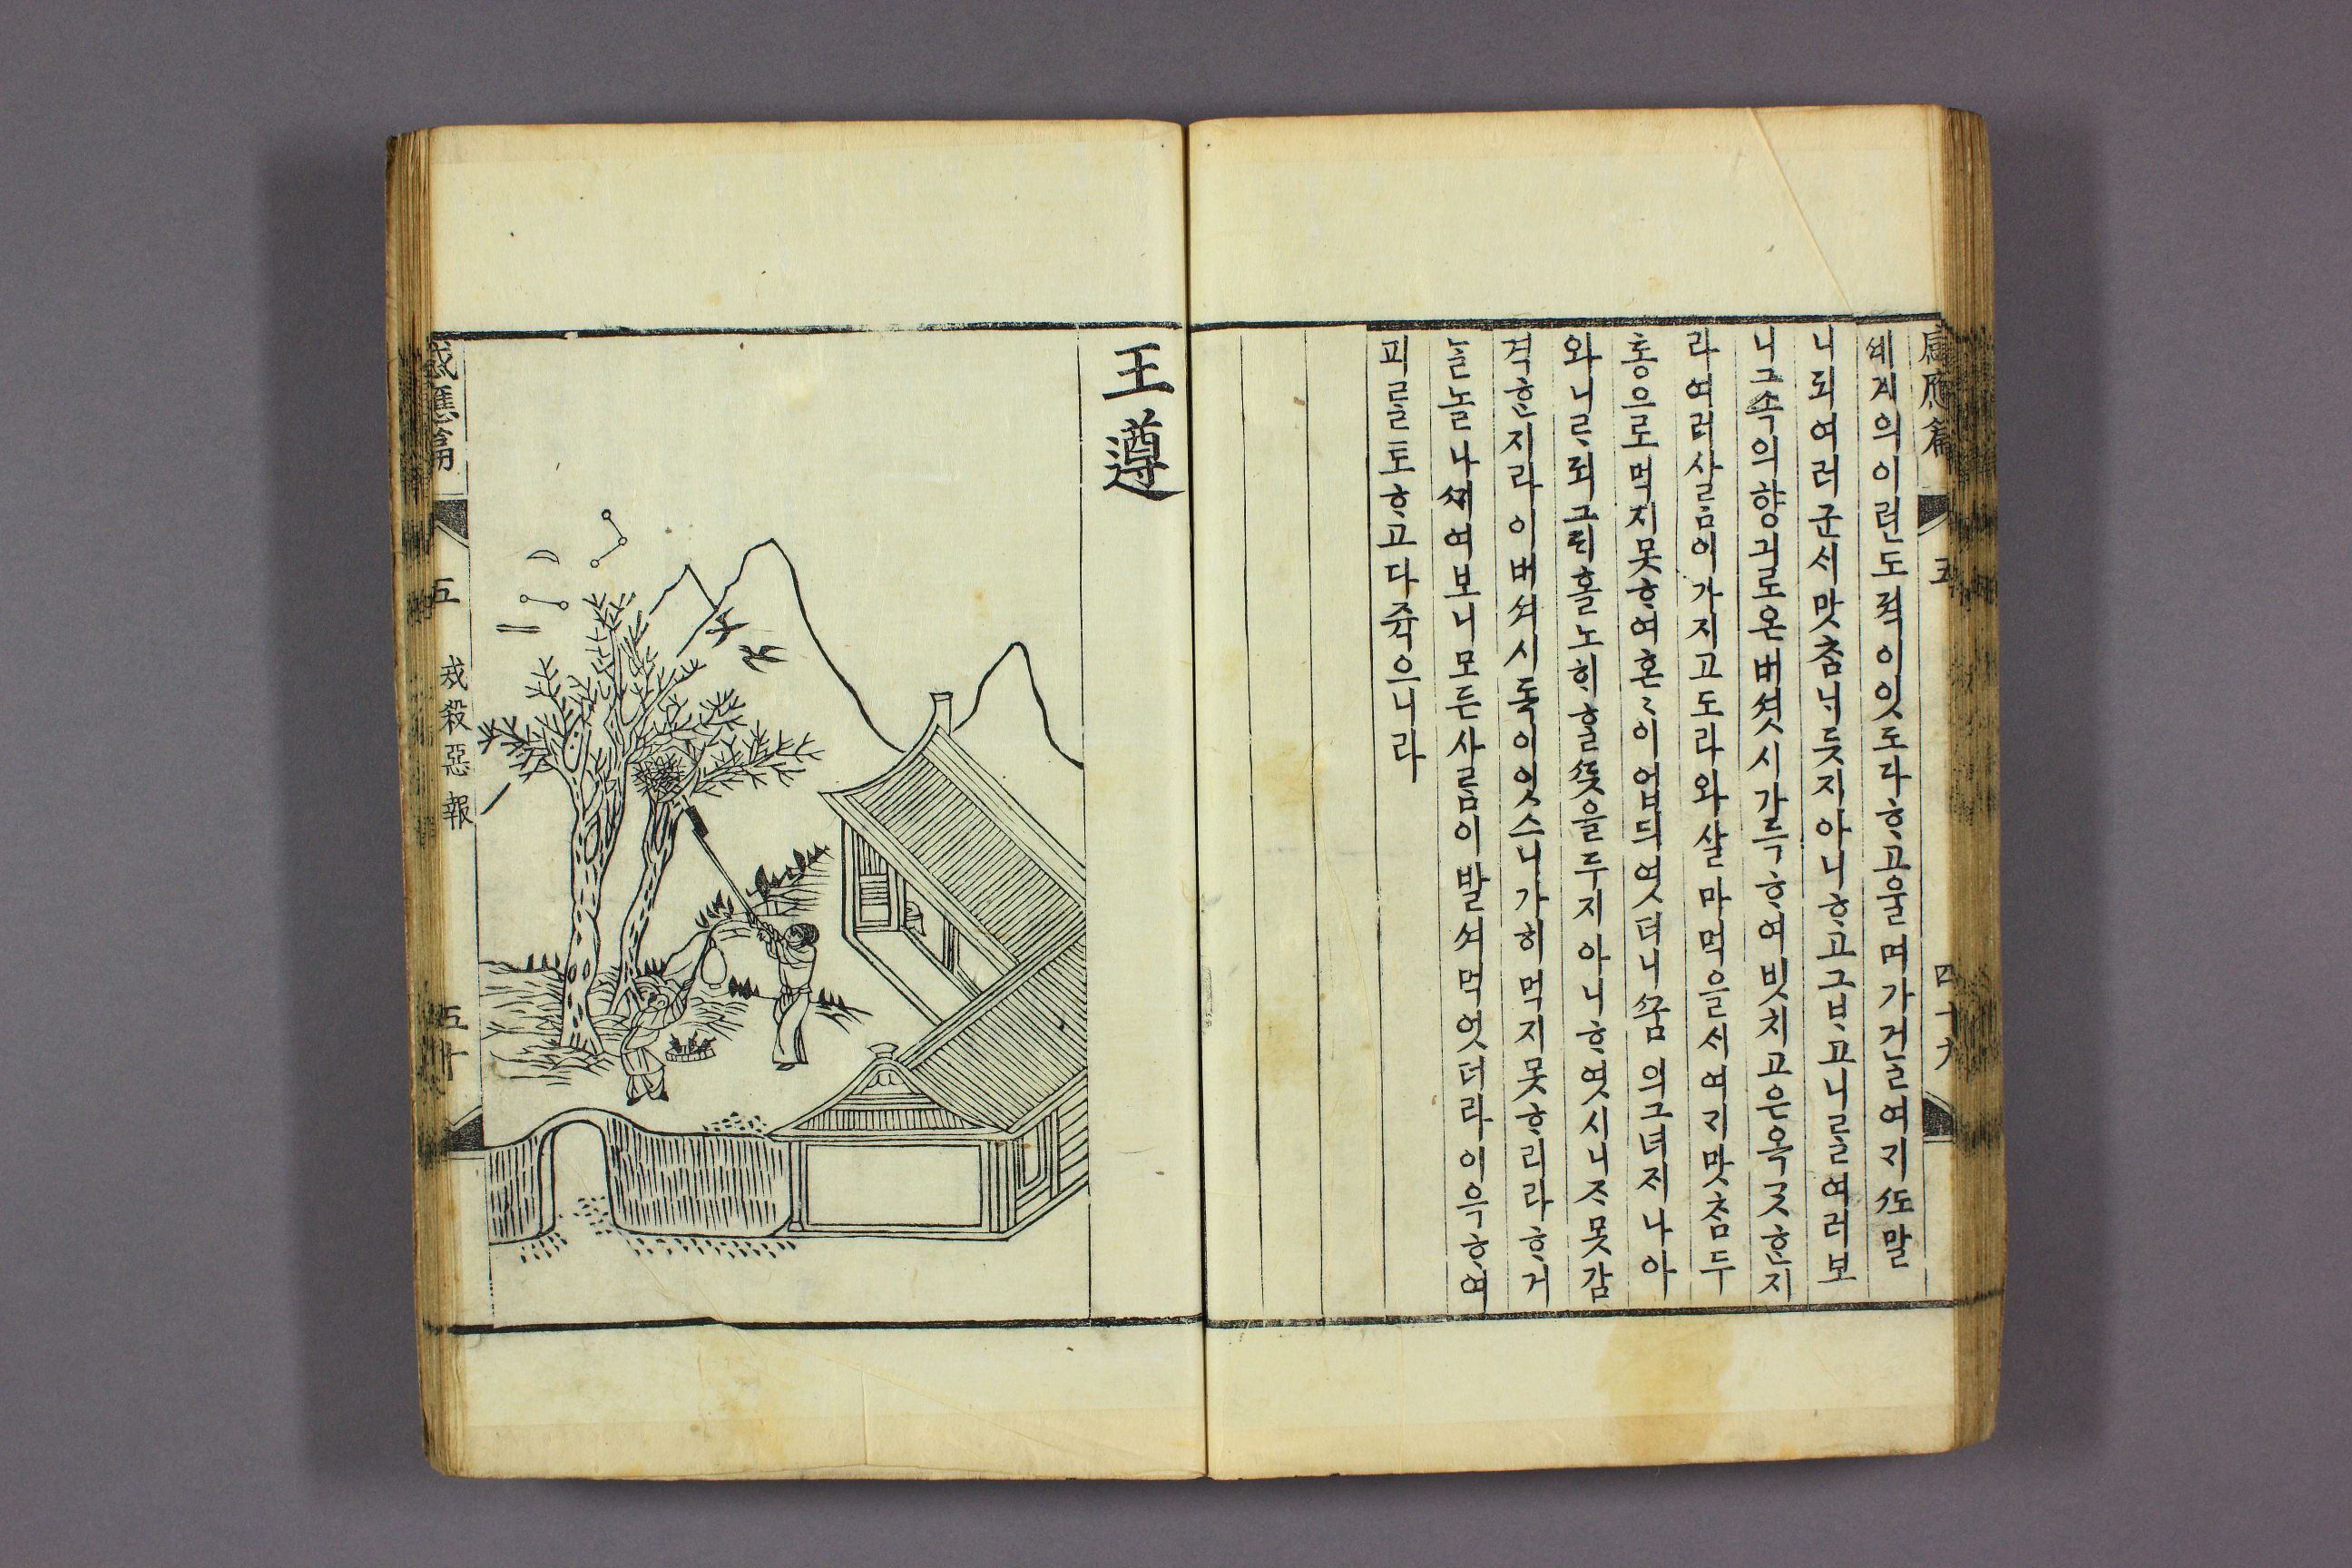 感應篇 五 四十九
세계의이런도젹이잇도다ᄒᆞ고울며가거ᄂᆞᆯ여ᄌᆡᄯᅩ말
니되여러군ᄉᆡ맛ᄎᆞᆷᄂᆡ듯지아니ᄒᆞ고그ᄇᆞ고니ᄅᆞᆯ여러보
니그속의향긔로온버셧시가득ᄒᆞ여빗치고은옥ᄀᆞᆺᄒᆞᆫ지
라여러사ᄅᆞᆷ이가지고도라와살마먹을ᄉᆡ여ᄌᆡ맛ᄎᆞᆷ두
통으로먹지못ᄒᆞ여혼〻이업듸엿더니ᄭᅮᆷ의그녀ᄌᆡ나아
와니ᄅᆞ되그ᄃᆡ홀노히ᄒᆞᆯᄯᅳᆺ을두지아니ᄒᆞ엿시니ᄌᆞ못감
격ᄒᆞᆫ지라이버셔시독이잇스니가히먹지못ᄒᆞ리라ᄒᆞ거
ᄂᆞᆯ놀나ᄭᆡ여보니모든사ᄅᆞᆷ이발셔먹엇더라이윽ᄒᆞ여
피ᄅᆞᆯ토ᄒᆞ고다쥭으니라
王遵
感應篇 五 戒殺惡報 五十